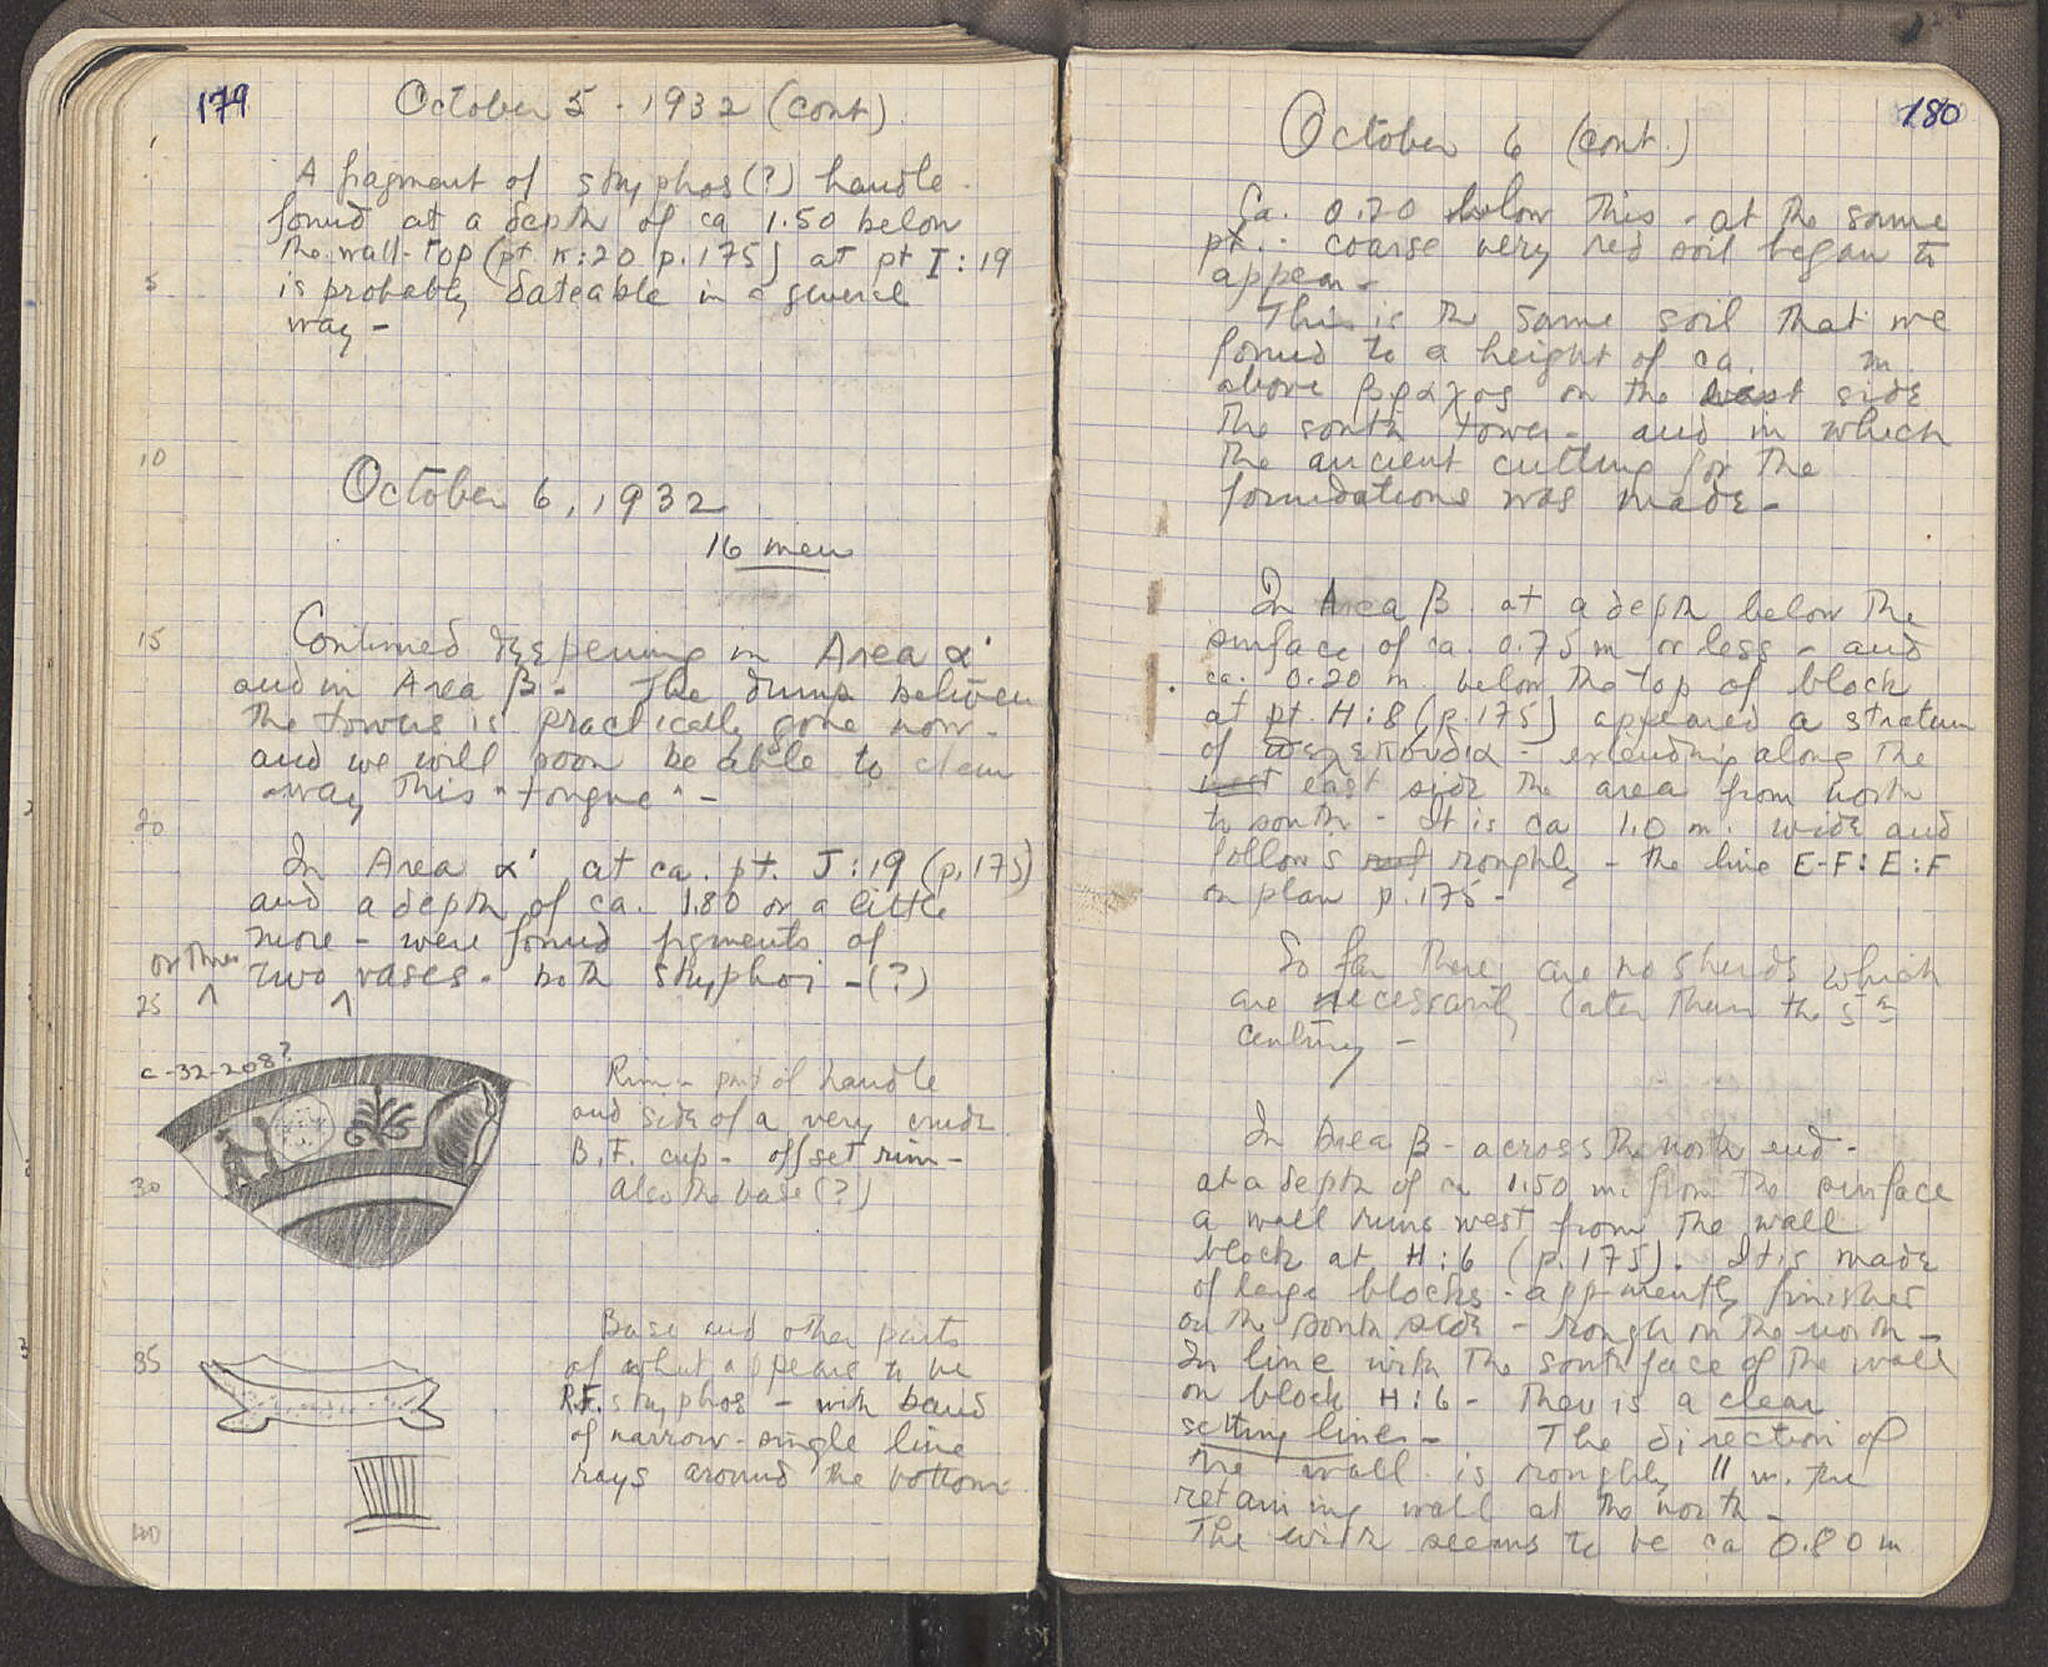 179
October 5 - 1932 (cont)
A fragment of skyphos (?) handle -
found at a depth of ca 1.50 below
the wall-top (pt K:20 p. 175) at pt I:19
is probably dateable in a general
way -
October 6, 1932
16 men
Continued deepening in Area α'
and in Area β - The dump between
the towers is practically gone now -
and we will soon be able to clear
away this "tongue" -
In Area α' at ca. pt. J:19 (p. 175)
and a depth of ca. 1.80 or a little
more - were found fgments of
or three
two vases - both skyphoi - (?)
c-32-208?
Rim - part of handle
and side of a very crude
B.F. cup - offset rim -
also the base (?)
Base and other parts
of what appears to be
R.F. skyphos - with band
of narrow - single line
rays around the bottom
1
5
10
15
20
25
30
35
40
180
October 6 (cont.)
Ca. 0.20 below this - at the same
pt. - coarse very red soil began to
appear -
This is the same soil that we
found to a height of ca. m.
above βραχος on the side
the south tower - and in which
the ancient cutting for the
foundations was made -
In Area β at a depth below the
surface of ca. 0.75 m or less - and
ca. 0.20 m below the top of block
at pt. H:8 (p. 175) appeared a stratum
of πελεκουδια - extending along the
west east side the area from north
to south - It is ca 1.0 m. wide and
follows roughly - the line E-F:E:F
on plan p. 175 -
So far there are no sherds which
are necessarily later than the 5th
century -
In Area β - across the north end -
at a depth of ca 1.50 m. from the surface
a wall runs west from the wall
block at H:6 (p. 175). It is made
of large blocks - apparently finished
on the south side - rough on the north -
In line with the south face of the wall
on block H:6 - there is a clear
setting line - The direction of
the wall is roughly || w. the
retaining wall at the north -
The width seems to be ca 0.80 m